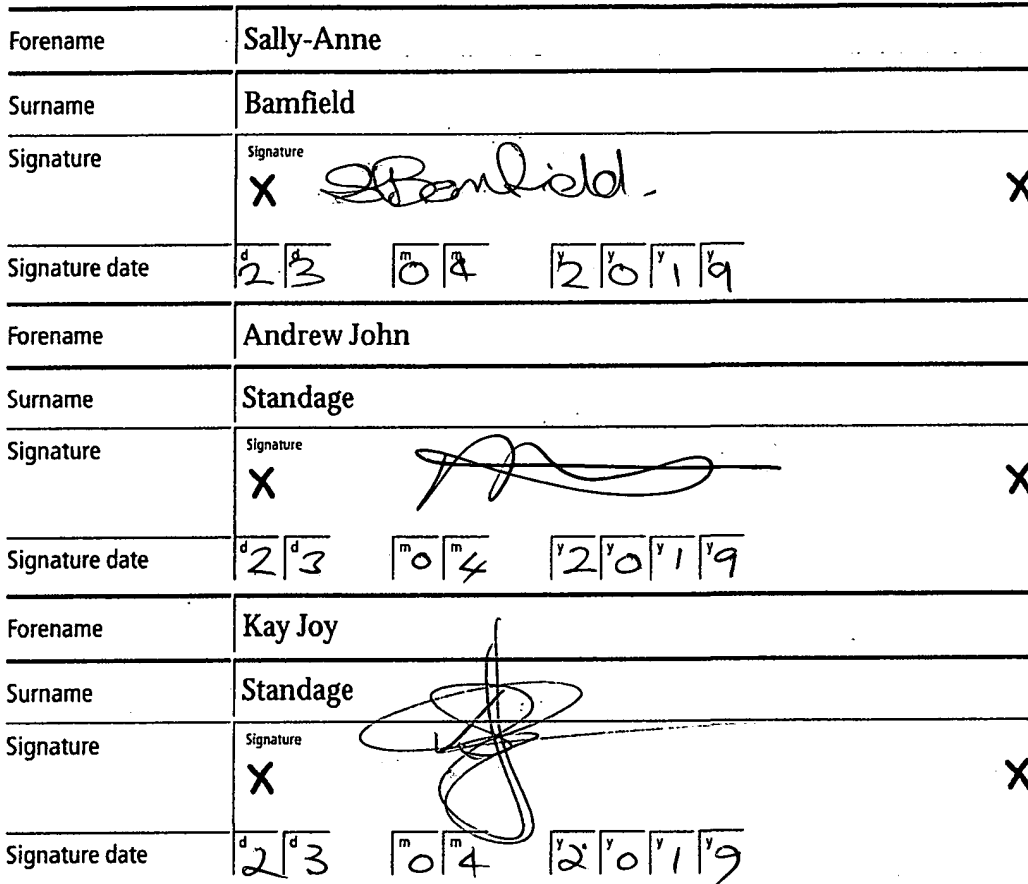 Forename Sally-Anne
Surname Bamfield
Signature Signature
X SBamfield. X
Signature date d2 d3 m0 m4 y2 y0 y1 y9
Forename Andrew John
Surname Standage
Signature Signature
X X
Signature date d2 d3 m0 m4 y2 y0 y1 y9
Forename Kay Joy
Surname Standage
Signature Signature
X X
Signature date d2 d3 m0 m4 y2 y0 y1 y9